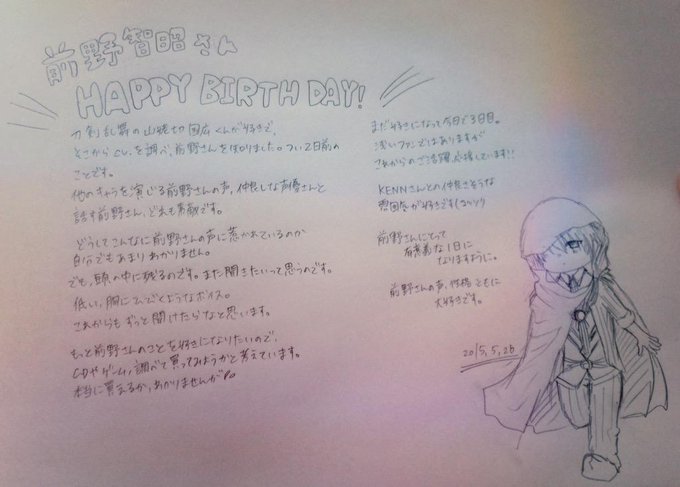 前野智昭さん
HAPPY BIRTHDAY!
刀剣乱舞の山姥切国広くんが好きで、
そこからcv.を調べ、前野さんを知りました。つい2日前の
ことです。
他のキャラを演じる前野さんの声、仲良しな声優さんと
話す前野さん、どれも素敵です。
どうしてこんなに前野さんの声に惹かれているのか
自分でもあまりわかりません。
でも、頭の中に残るのです。また聞きたいって思うのです。
低い、胸にひびくようなボイス。
これからもずっと聞けたらなと思います。
もっと前野さんのことを好きになりたいので、
CDやゲーム、調べて買ってみようかと考えています。
本当に買えるか、わかりませんが
まだ好きになって今日で3日目。
浅いファンではありますが
これからのご活躍、応援しています!!
KENNさんとの仲良さそうな
雰囲気が好きです
前野さんにとって
有意義な1日に
なりますように。
前野さんの声、性格ともに
大好きです。
2015,5,26